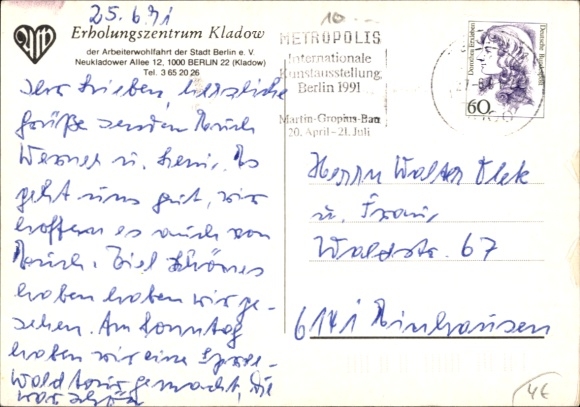 25.6.91
Erholungszentrum Kladow
der Arbeiterwohlfahrt der Stadt Berlin e. V.
Neukladower Allee 12, 1000 BERLIN 22 (Kladow)
Tel. 3 65 20 26
Ihr Lieben, herzliche
Grüße senden Euch
Werner u. Es
geht uns gut, wir
hoffen es auch von
Euch. Viel Schönes
haben haben wir ge-
sehen. Am Sonntag
haben wir eine Spree-
waldtour gemacht, die
war schön
10
METROPOLIS
Internationale
Kunstausstellung
Berlin 1991
Martin-Gropius-Bau
20. April – 21. Juli
Deutsche Bundespost
60
Herrn Walter
u. Frau,
Waldstr. 67
6141 Einhausen
4€